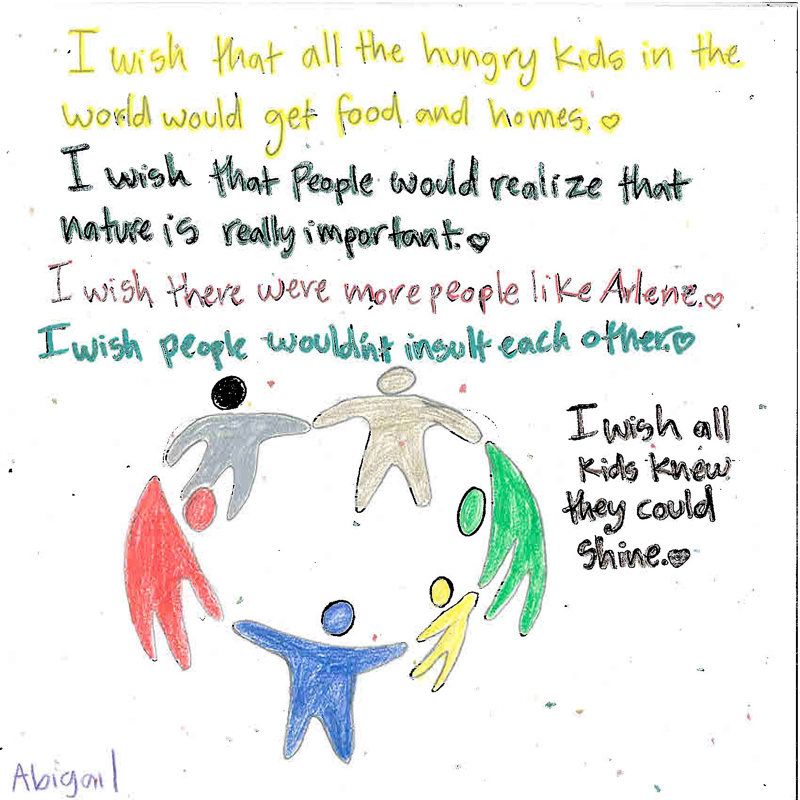 I wish that all the hungry kids in the
world would get food and homes. ♡
I wish that People would realize that
nature is really important. ♡
I wish there were more people like Arlene. ♡
I wish people wouldn't insult each other. ♡
I wish all
kids knew
they could
shine. ♡
Abigail